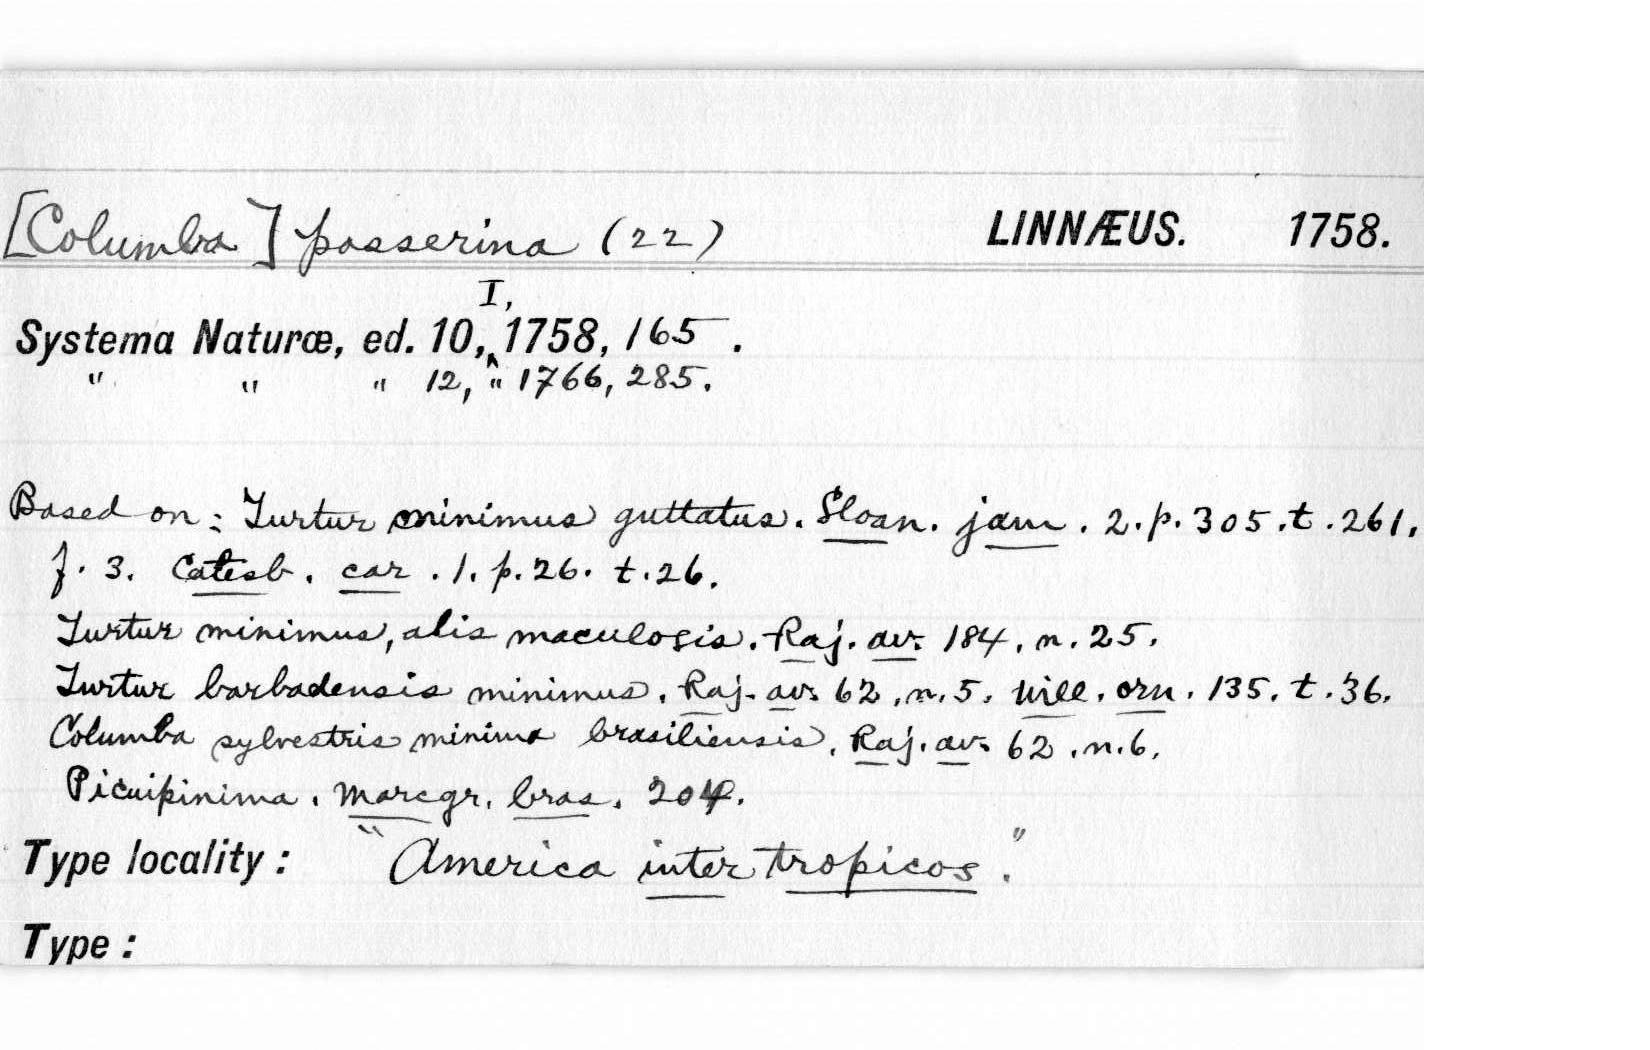 [Columba] passerina (22) LINNÆUS. 1758.
I,
Systema Naturæ, ed. 10,‸1758, 165.
" " " 12, " 1766, 285.
Based on: Turtur minimus guttatus. Sloan. jam. 2. p. 305. t. 261.
f. 3. Catesb. car. 1. p. 26. t. 26.
Turtur minimus, alis maculosis. Raj. av. 184, n. 25.
Turtur barbadensis minimus. Raj. av. 62, n. 5. Will. orn. 135. t. 36.
Columba sylvestris minima brasiliensis. Raj. av. 62. n. 6.
Picuipinima. Marcgr. bras. 204.
Type locality: "America inter tropicos."
Type: